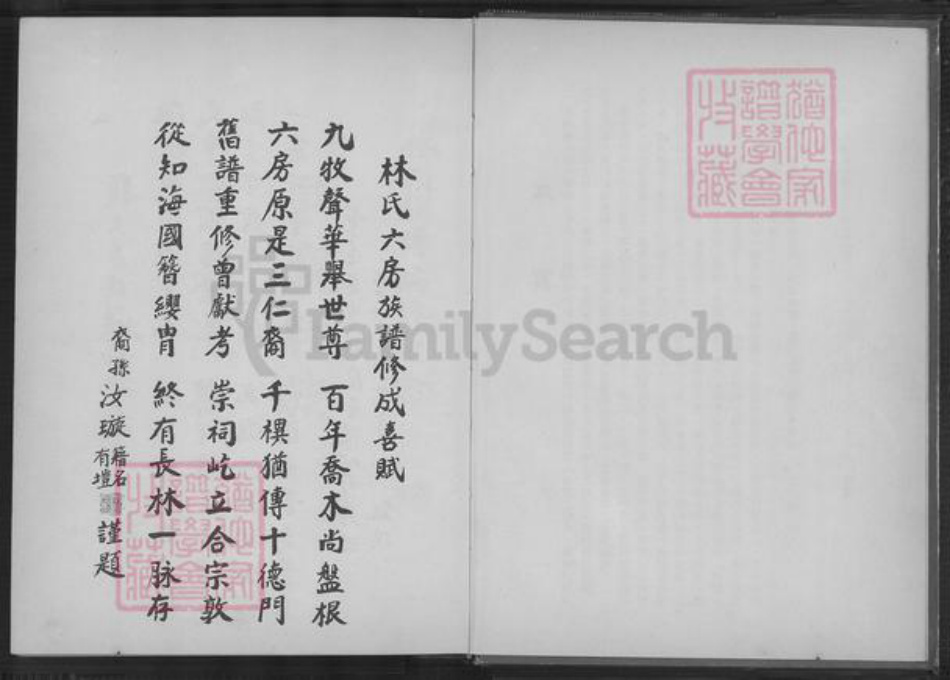 林氏六房族譜修成喜賦
九牧聲華舉世尊 百年喬木尚盤根
六房原是三仁裔 千襈猶傳十德門
舊譜重修曾獻考 崇祠屹立合宗敦
從知海國簪纓胄 終有長林一脉存
裔孫汝璇籍名有塏謹題
猶他家譜學會收藏
猶他家譜學會收藏
FamilySearch